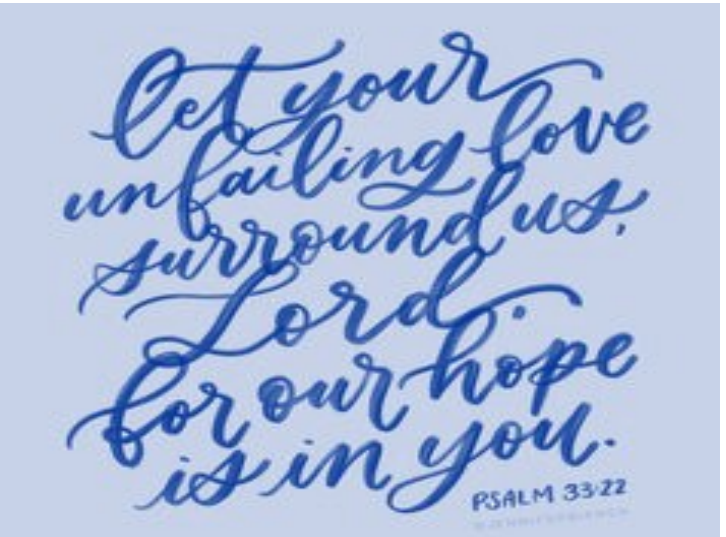 let your
unfailing love
surround us,
Lord.
for our hope
is in you.
PSALM 33:22